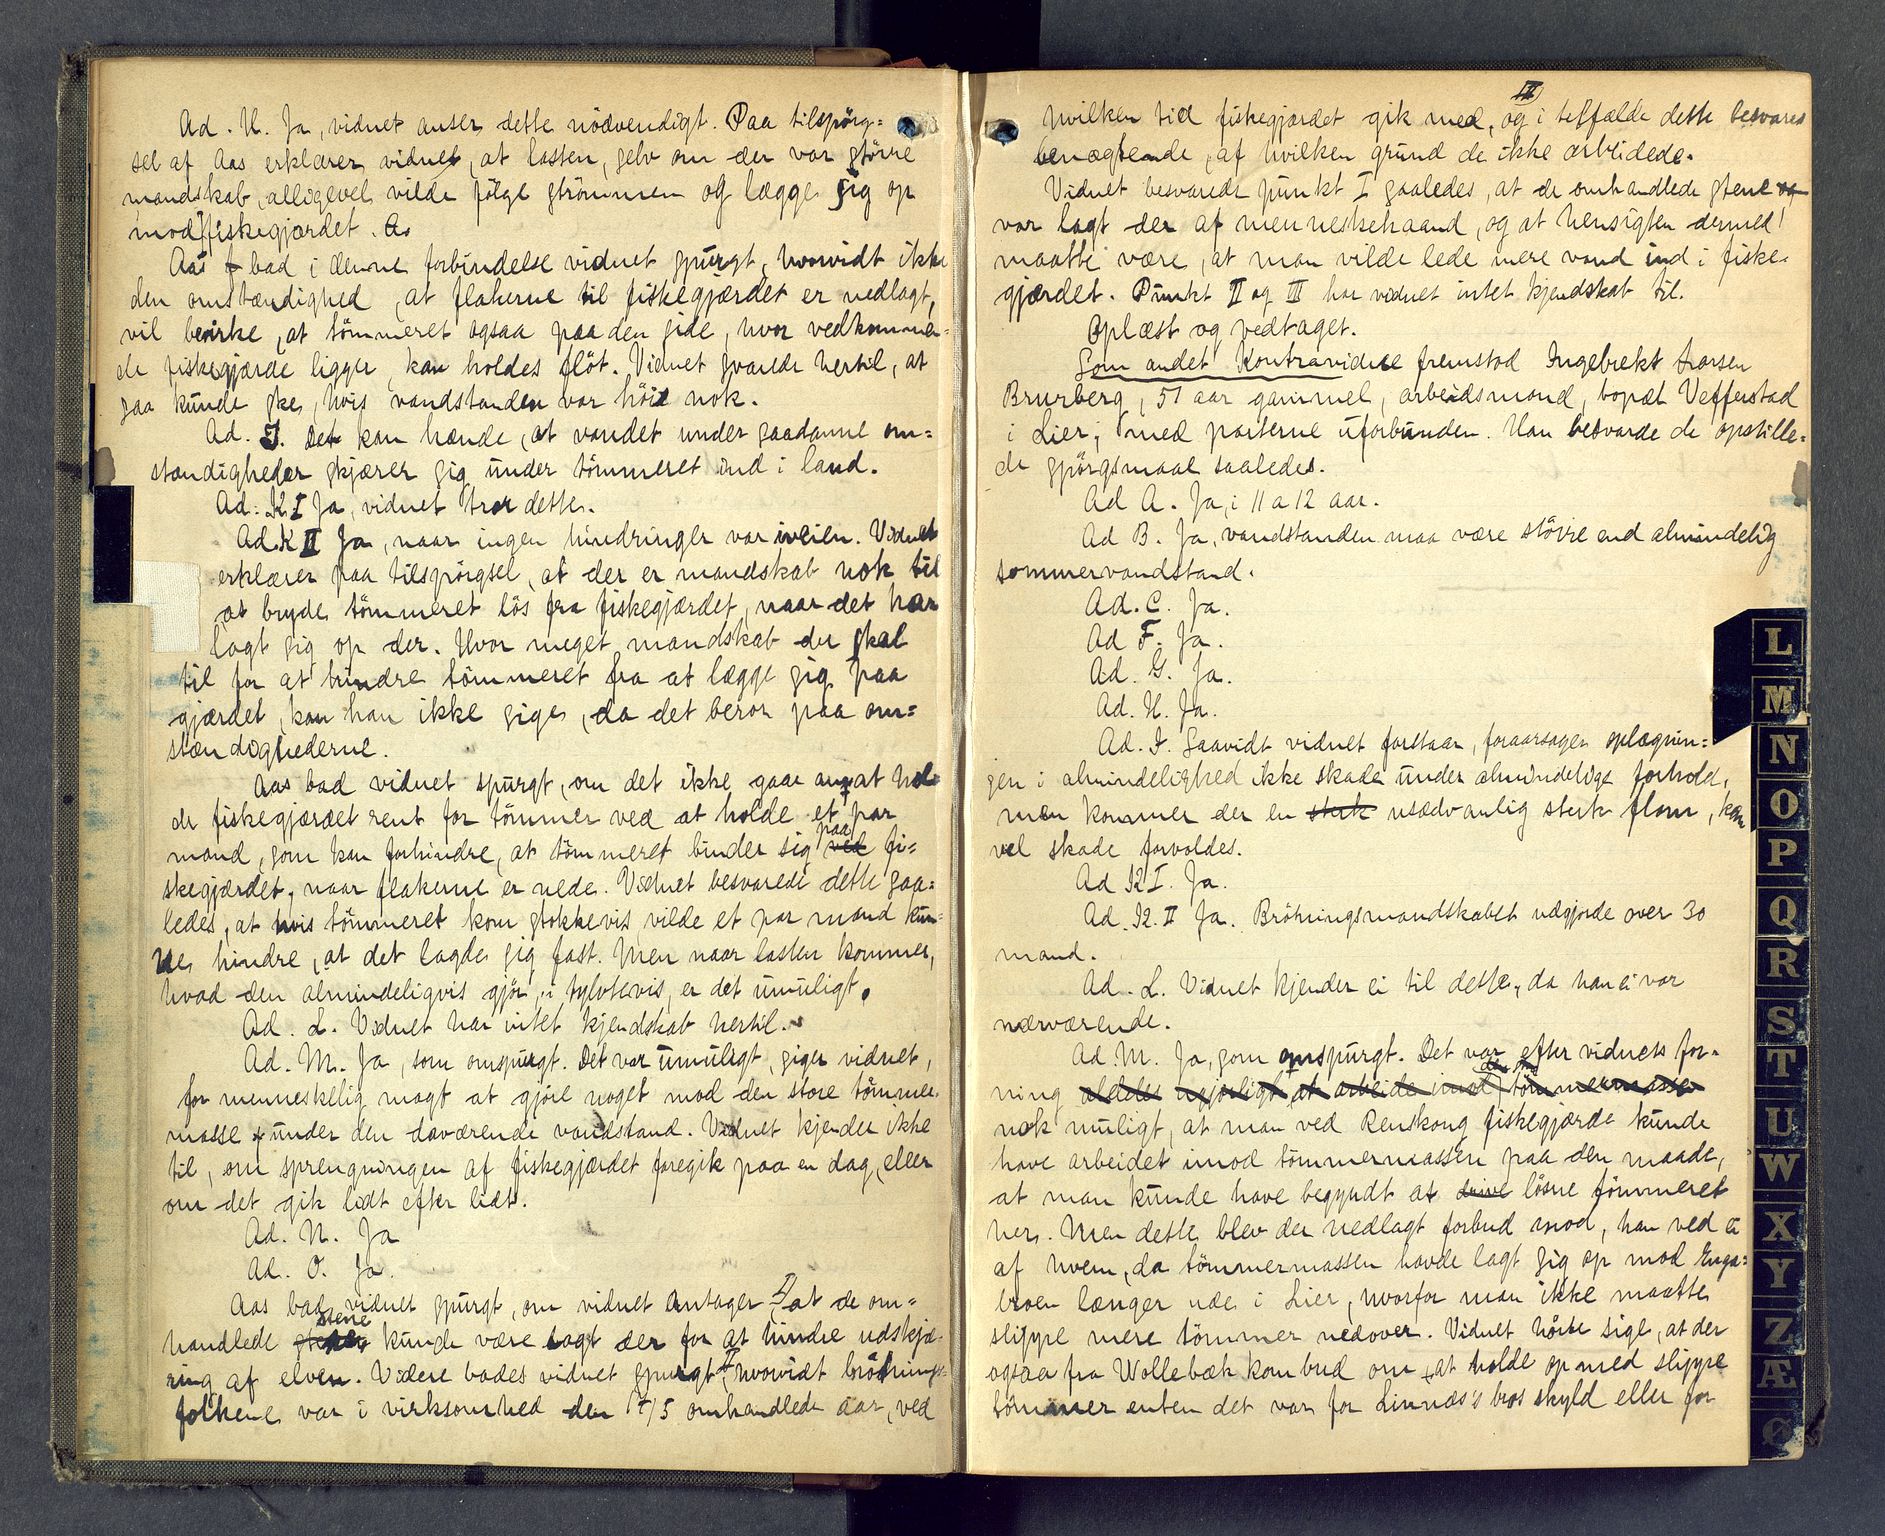 Ad. H. Ja, vidnet anser dette nödvendigt. Paa tilspörg=
sel af Aas erklærer vidnet, at lasten, selv om der var större
mandskab, alligevel vilde fölge strömmen og lægge sig op
mod fiskegjærdet. A.
Aas bad i denne forbindelse vidnet spurgt, hvorvidt ikke
den omstændighed, at flakerne til fiskegjærdet er nedlagt,
vil bevirke, at tömmeret ogsaa paa den side, hvor vedkommen=
de fiskegjærde ligger, kan holdes flöt. Vidnet svarede hertil, at
saa kunde ske, hvis vandstanden var höie nok.
Ad. J. Det kan hænde, at vandet under saadanne om=
stændigheder skjærer sig under tömmeret ind i land.
Ad. K I Ja, vidnet tror dette.
Ad. K II Ja, naar ingen hindringer var iveien. Vidnet
erklærer paa tilspörgsel, at der er mandskab nok til
at bryde tömmeret lös fra fiskegjærdet, naar det har
lagt sig op der. Hvor meget mandskab der skal
til for at hindre tömmeret fra at lægge sig paa
gjærdet, kan han ikke sige, da det beror paa om=
stændighederne.
Aas bad vidnet spurgt, om det ikke gaar an at hol
de fiskegjærdet rent for tömmer ved at holde et par
mand, som kan forhindre, at tömmeret binder sig ved paa fi=
skegjærdet, naar flakerne er nede. Vidnet besvarede dette saa=
ledes, at hvis tömmeret kom stokkevis vilde et par mand kun=
ne hindre, at det lagde sig fast. Men naar lasten kommer,
hvad den almindeligvis gjör, i tylvtevis, er det umuligt.
Ad. L. Vidnet har intet kjendskab hertil.
Ad. M. Ja, som omspurgt. Det var umuligt, siger vidnet,
for menneskelig magt at gjöre noget mod den store tömmer
masse under den daværende vandstand. Vidnet kjender ikke
til, om sprengningen af fiskegjærdet foregik paa en dag, eller
om det gik lidt efter lidt.
Ad. N. Ja
Ad. O. Ja.
Aas bad vidnet spurgt, om vidnet antager I) at de om=
handlede stene kunde være lagt der for at hindre udskjæ=
ring af elven. Videre bades vidnet spurgt II hvorvidt brötnings=
folkene var i virksomhed den 17/5 omhandlede aar, ved
hvilken tid fiskegjærdet gik med, III og i tilfælde dette besvares
benægtende, af hvilken grund de ikke arbeidede.
Vidnet besvarede punkt I saaledes, at de omhandlede stene og
var lagt der af menneskehaand, og at hensigten dermed
maatte være, at man vilde lede mere vand ind i fiske=
gjærdet. Punkt II og III har vidnet intet kjendskab til.
Oplæst og vedtaget.
Som andet Kontravidne fremstod Ingebrekt Larsen
Brurberg, 51 aar gammel, arbeidsmand, bopæl Vefferstad
i Lier, med parterne uforbunden. Han besvarde de opstille=
de spörgsmaal saaledes.
Ad A. Ja, i 11 a 12 aar.
Ad B. Ja, vandstanden maa være större end almindelig
sommervandstand.
Ad. C. Ja.
Ad F. Ja.
Ad. G. Ja.
Ad. H. Ja.
Ad. J. Saavidt vidnet forstaar, foraarsager oplægnin=
gen i almindelighed ikke skade under almindelige forhold,
men kommer der en sterk usædvanlig sterk flom, kan
vel skade forvoldes.
Ad K I. Ja.
Ad. K. II Ja. Brötningsmandskabet udgjorde over 30
mand.
Ad. L. Vidnet kjender ei til dette, da han ei var
nærværende.
Ad. M. Ja, som omspurgt. Det var efter vidnets for=
ning aldeles ugjörligt at arbeide imod tömmermassen
nok muligt, at man ved Renskoug fiskegjærde kunde
have arbeidet imod tömmermassen paa den maade,
at man kunde have begyndt at drive lösne tömmeret
her. Men dette blev der nedlagt forbud imod, han ved ei
af hvem, da tömmermassen havde lagt sig op mod Enga=
broen længer nede i Lier, hvorfor man ikke maatte
slippe mere tömmer nedover. Vidnet hörte sige, at der
ogsaa fra Wollebæk kom bud om at holde op med slippe
tömmer enten det var for Linnæs's bros skyld eller for
L
M
N
O
P
Q
R
S
T
U
W
X
Y
Z
Æ
Ø